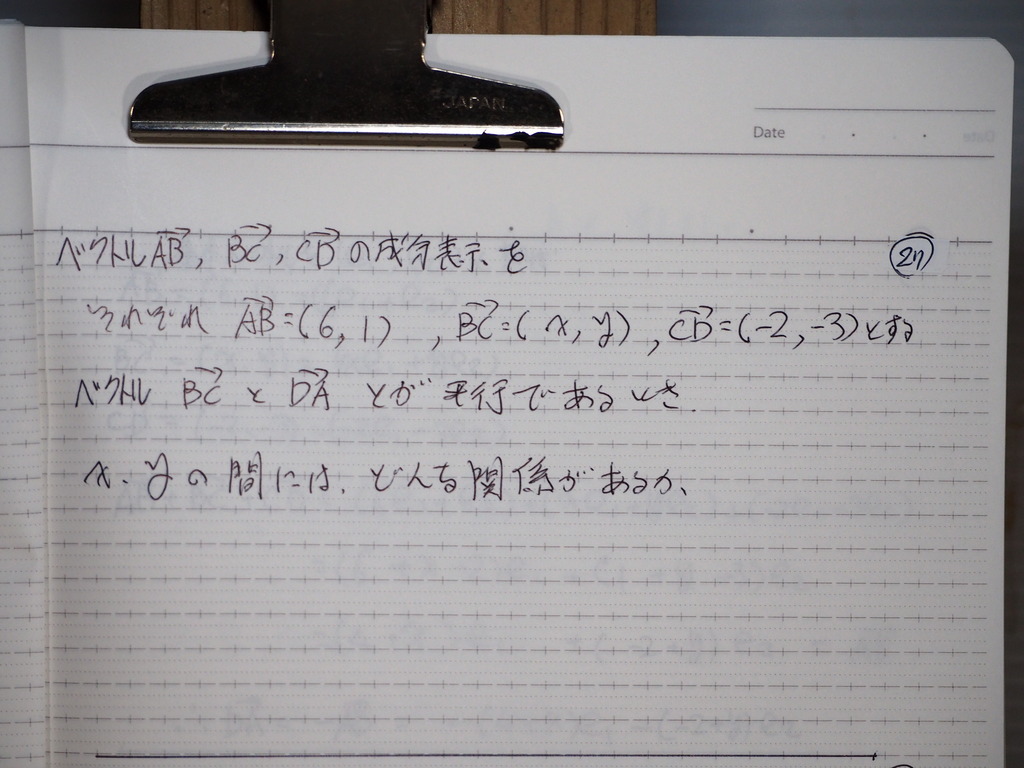 JAPAN
Date
ベクトルAB, BC, CDの成分表示を
27
それぞれ AB=(6,1), BC=(x,y), CD=(-2,-3)とする
ベクトル BC と DA とが 平行であるとき.
x. yの間には、どんな関係があるか、